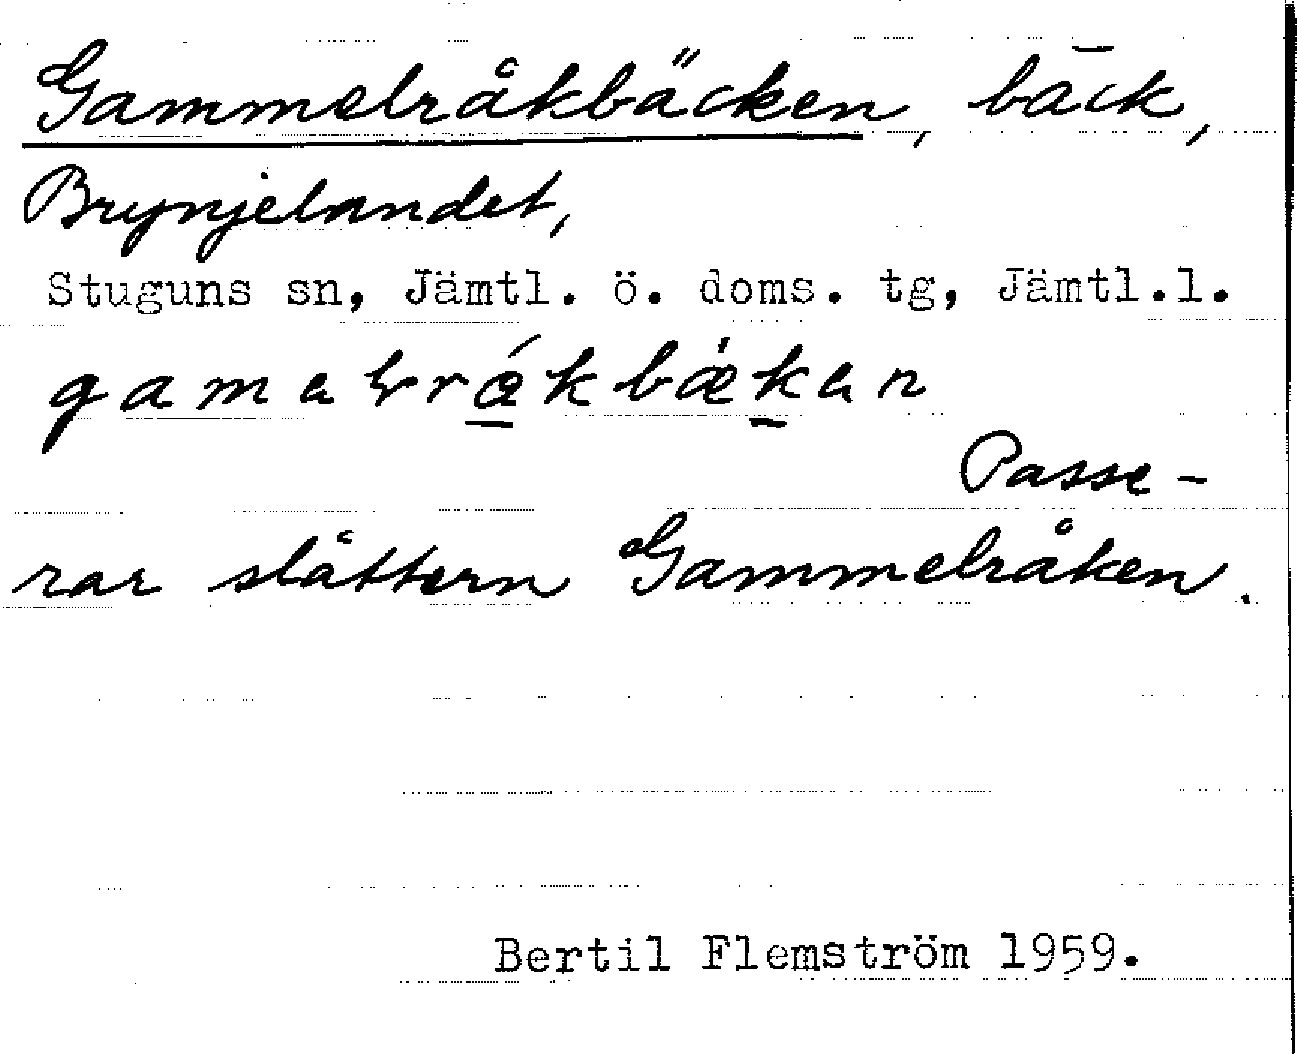 Gammelråkbäcken, bäck,
Brynjelandet,
Stuguns sn, Jämtl. ö. doms. tg, Jämtl.l.
Passe-
rar slåttern Gammelråken.
Bertil Flemström 1959.